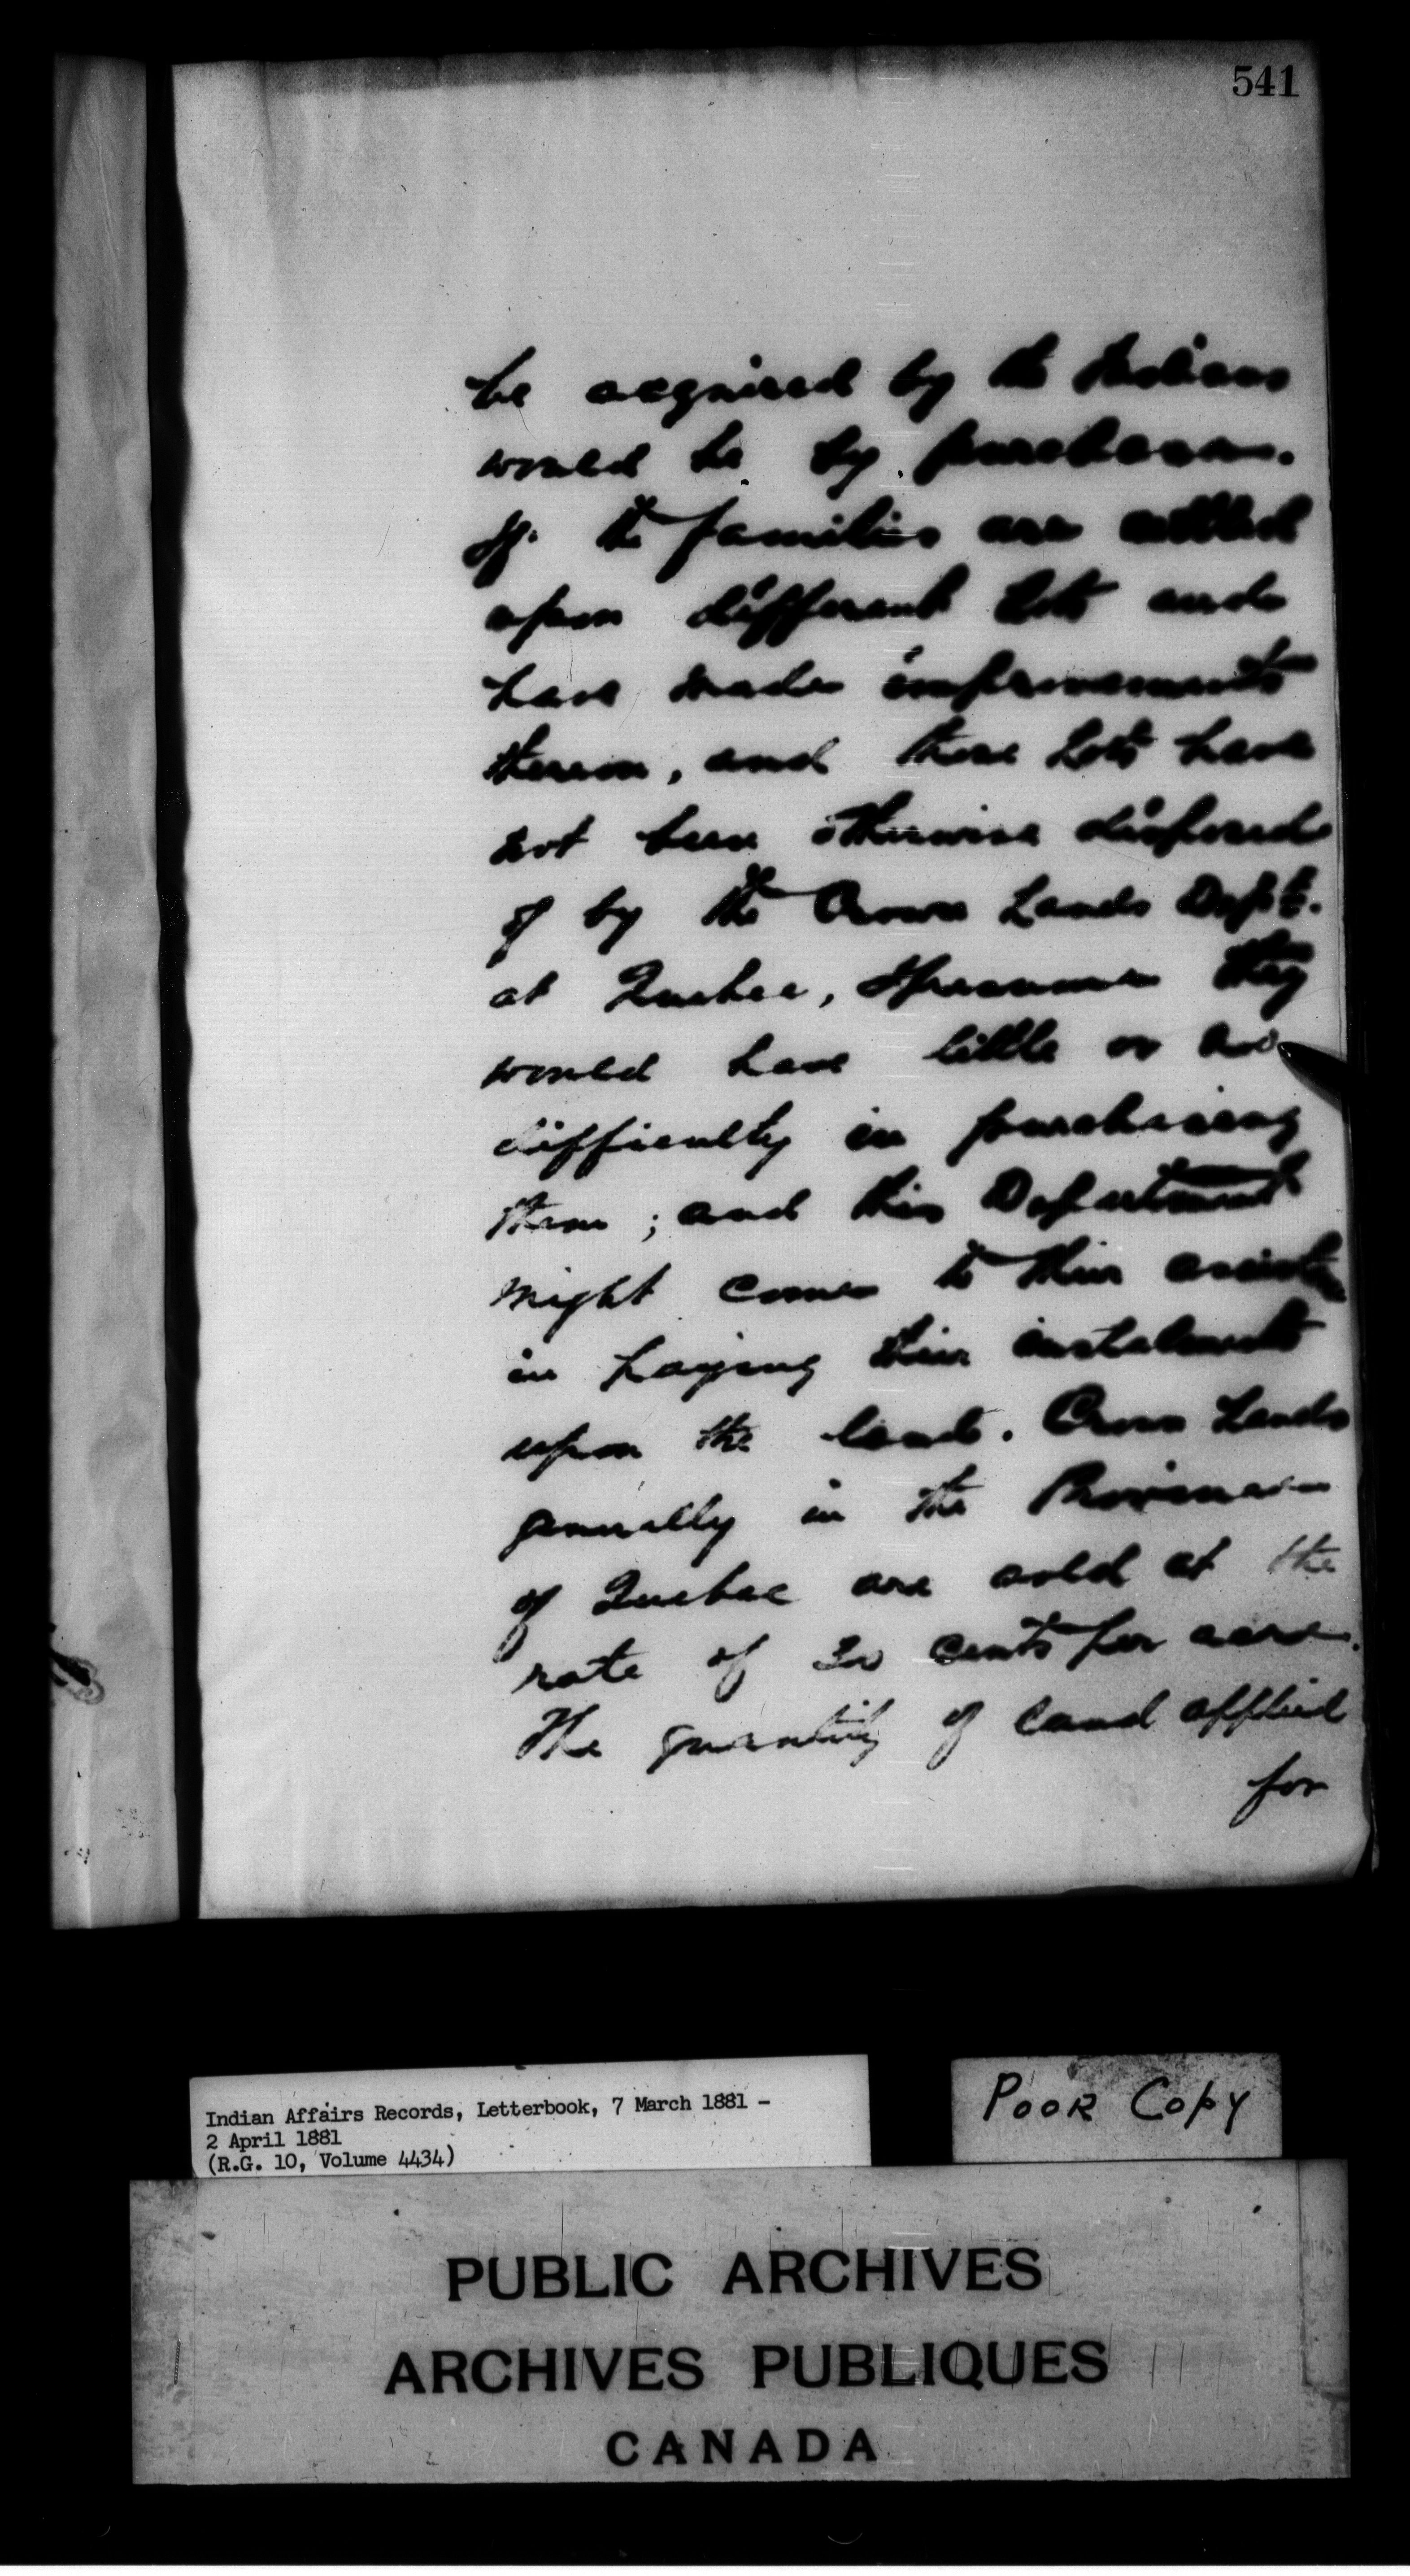 541
be acquired by the Indians
would be by purchase.
If the families are settled
upon different lots and
have made improvements
thereon, and those lots have
not been otherwise disposed
of by the Crown Lands Dept.
at Quebec, I presume they
would have little or no
difficulty in purchasing
them; and this Department
might come to their assistance
in paying their instalments
upon the land. Crown Lands
generally in the Province
of Quebec are sold at the
rate of 30 cents per acre.
The quantity of land applied
for
Indian Affairs Records, Letterbook, 7 March 1881 -
2 April 1881
(R.G. 10, Volume 4434)
POOR COPY
PUBLIC ARCHIVES
ARCHIVES PUBLIQUES
CANADA